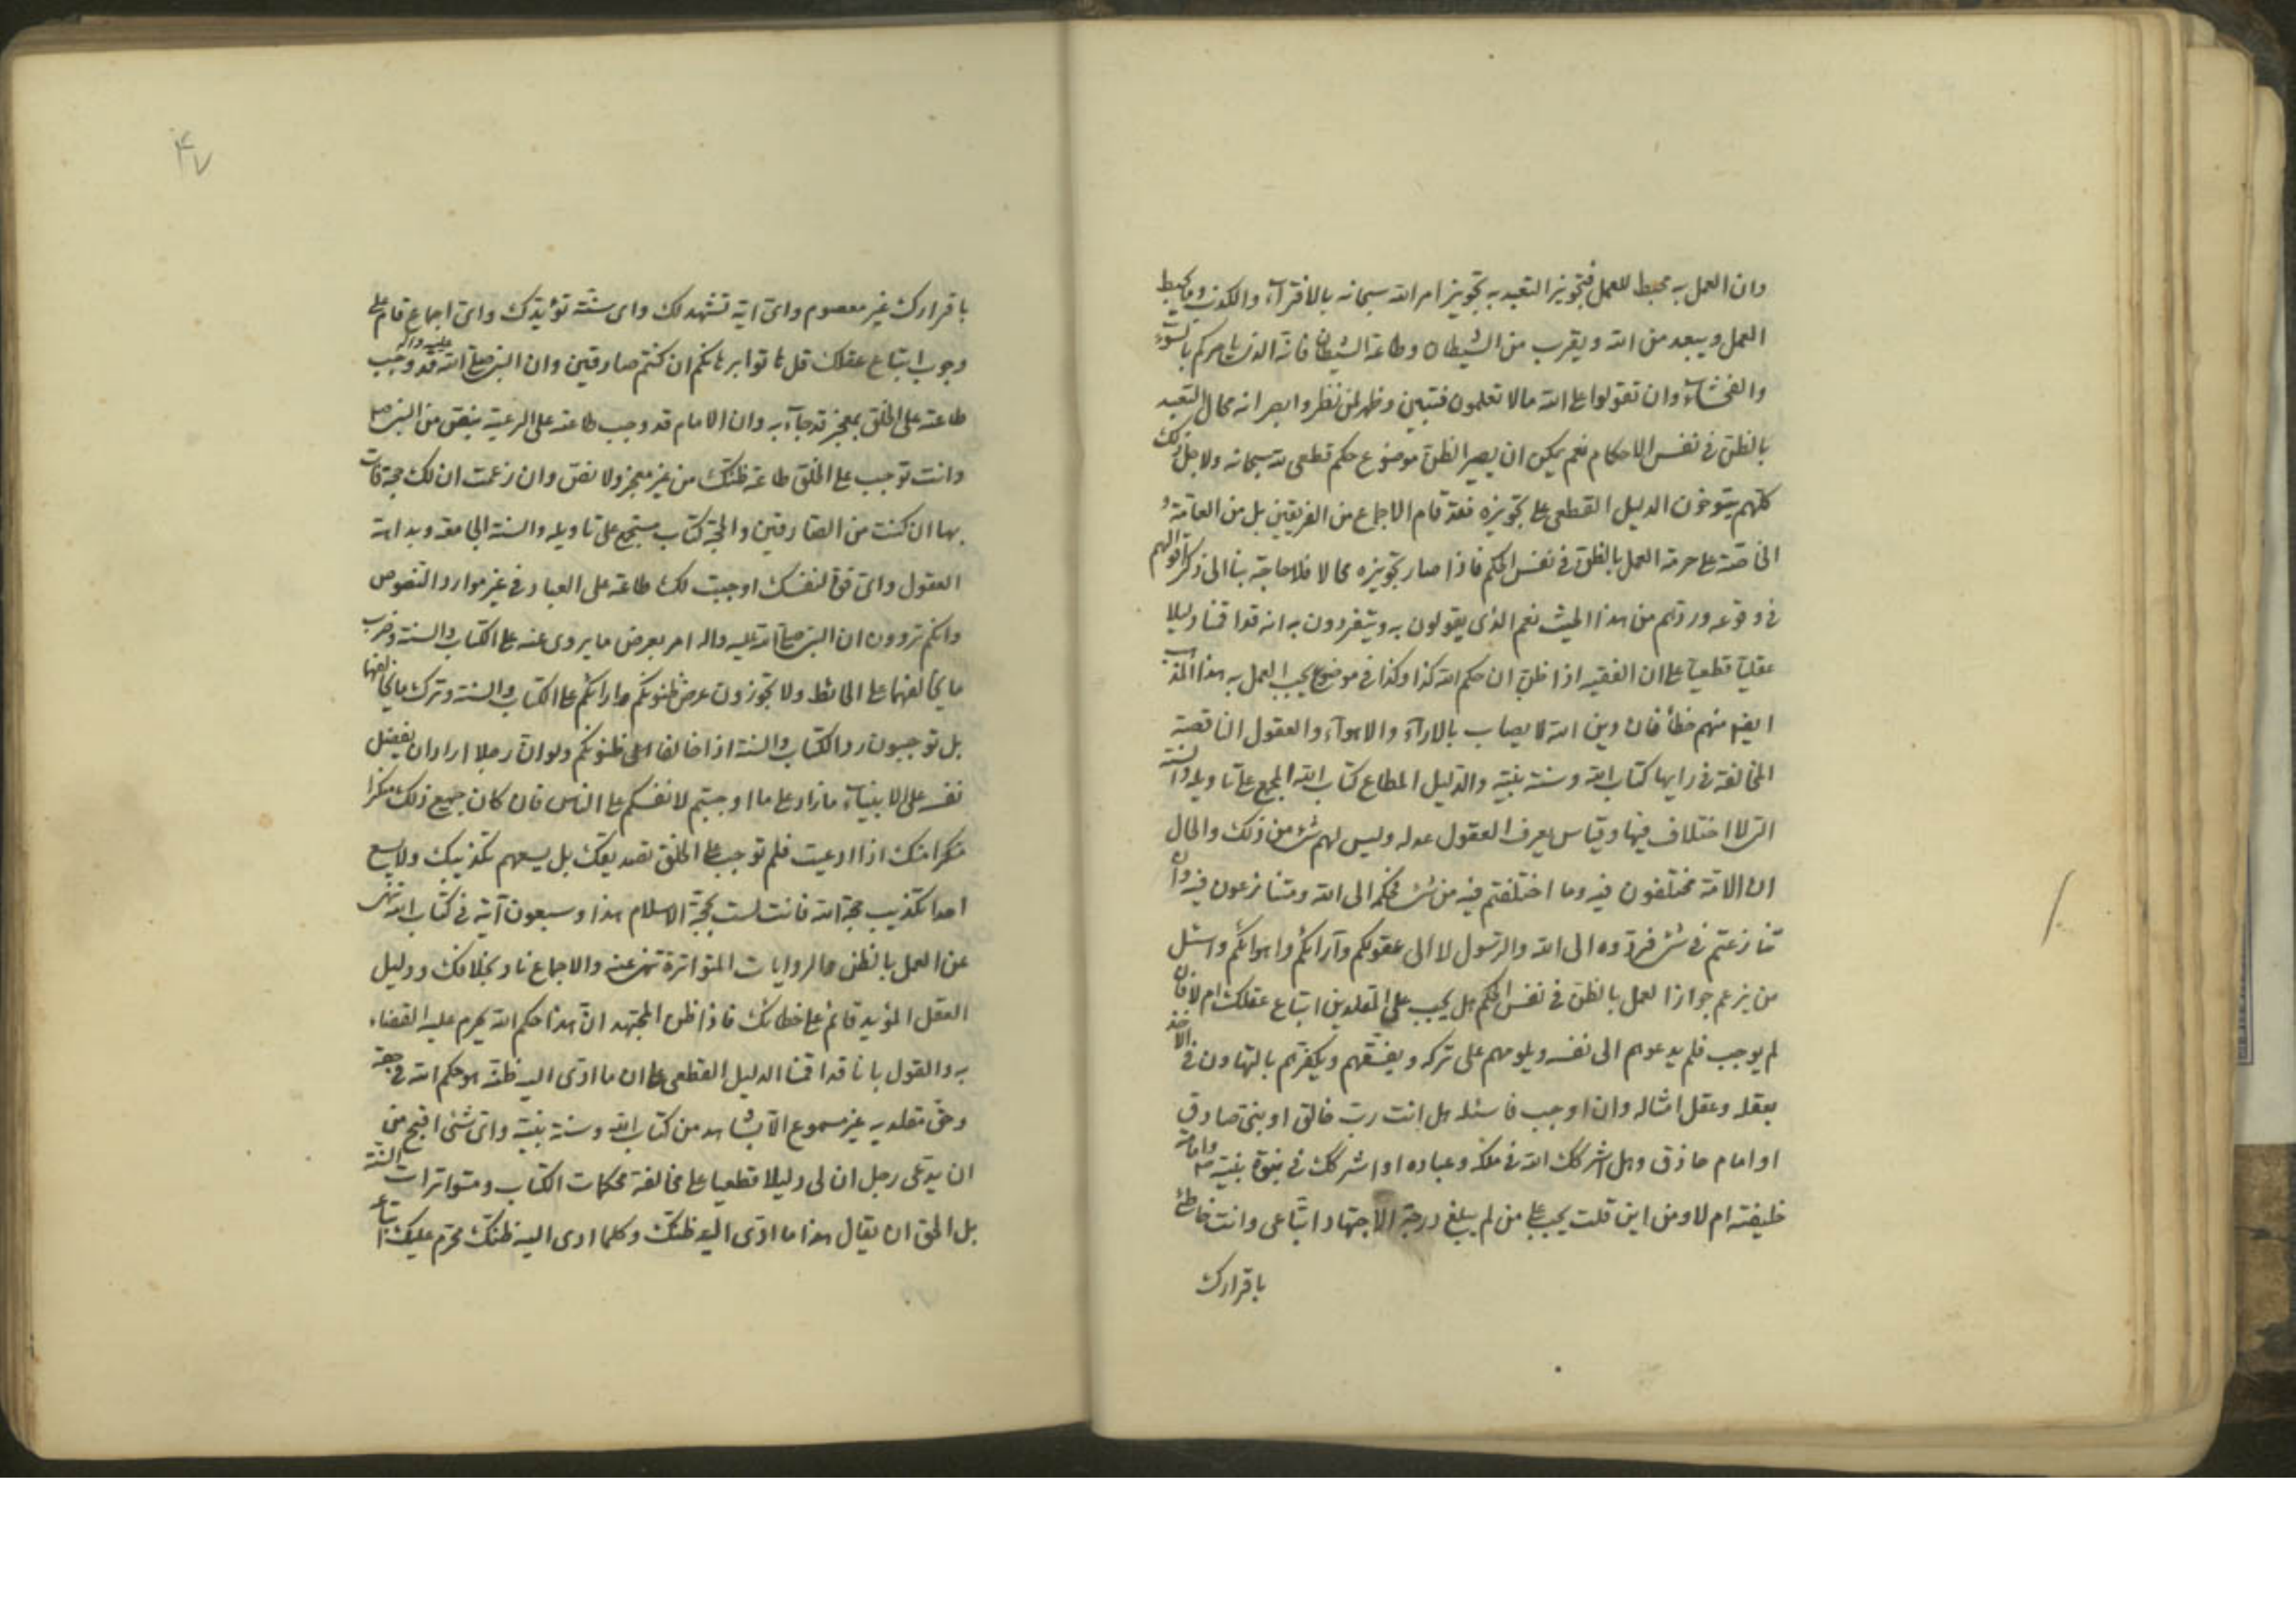 وان العمل به محبط للعمل فتجويز التعبد به تجويز امر الله سبحانه بالافتراء والكذب وما يحبط
العمل ويبعد من الله ويقرب من الشيطان وطاعة الشيطان فانه الذى يامركم بالسوء
والفحشاء وان تقولوا على الله ما لا تعلمون فتبين وظهر لمن نظر وابصر انه محال التعبد
بالظن فى نفس الاحكام نعم يمكن ان يصير الظن موضوع حكم قطعى لله سبحانه ولاجل ذلك
كلهم يتوخون الدليل القطعى على تجويزه فقد قام الاجماع من الفريقين بل من العامة و
الخاصة على حرمة العمل بالظن فى نفس الحكم فاذا صار تجويزه محالا فلا حاجة بنا الى ذكر اقوالهم
فى وقوعه وردهم من هذا الحيث نعم الذى يقولون به ويتفردون به انه قد اقمنا دليلا
عقليا قطعيا على ان الفقيه اذا ظن ان حكم الله كذا وكذا فى موضوع يجب العمل به هذا المذهب
ايضا منهم خطأ فان دين الله لا يصاب بالاراء والاهواء والعقول الناقصة
المخالفة فى رايها كتاب الله وسنة نبيه والدليل المطاع كتاب الله المجمع على تاويله والسنة
التى لا اختلاف فيها وقياس يعرف العقول عدله وليس لهم شئ من ذلك والحال
ان الامة مختلفون فيه وما اختلفتم فيه من شئ فحكمه الى الله ومتنازعون فيه وان
تنازعتم فى شئ فردوه الى الله والرسول لا الى عقولكم وآرائكم واهوائكم واسئل
من يزعم جواز العمل بالظن فى نفس الحكم هل يجب على المقلدين اتباع عقلك ام لا فان
لم يوجب فلم يدعوهم الى نفسه ويلومهم على تركه ويفسقهم ويكفرهم بالتهاون فى الاخذ
بعقله وعقل امثاله وان اوجب فاسئله هل انت رب خالق او نبى صادق
او امام حاذق وهل اشركك الله فى ملكه وعباده او اشركك فى نبوة نبيه وامامة
خليفته ام لا ومن اين قلت يجب على من لم يبلغ درجة الاجتهاد اتباعى وانت خاطئ
باقرارك
۴۷
باقرارك غير معصوم واى اية تشهد لك واى سنة تؤيدك واى اجماع قام على
وجوب اتباع عقلك قل هاتوا برهانكم ان كنتم صادقين وان النبى صلى الله عليه واله قد وجب
طاعته على الخلق بمعجز قد جاء به وان الامام قد وجب طاعته على الرعية بنص من النبى ص
وانت توجب على الخلق طاعة ظنك من غير معجز ولا نص وان زعمت ان لك حجة فات
بها ان كنت من الصادقين والحجة كتاب مستجمع على تاويله والسنة الجامعة وبداهة
العقول واى قوة لنفسك اوجبت لك طاعة على العباد فى غير موارد النصوص
وانكم تروون ان النبى صلى الله عليه واله امر بعرض ما يروى عنه على الكتاب والسنة وضرب
ما يخالفهما على الحائط ولا تجوزون عرض ظنونكم وارائكم على الكتاب والسنة وترك ما يخالفهما
بل توجبون رد الكتاب والسنة اذا خالفا الى ظنونكم ولو ان رجلا اراد ان يفضل
نفسه على الانبياء ما زاد على ما اوجبتم لانفسكم على الناس فان كان جميع ذلك منكرا
منكرا منك اذا ادعيت فلم توجب على الخلق تصديقك بل يسعهم تكذيبك ولا يسع
احدا تكذيب حجة الله فانت لست بحجة الاسلام هذا وسبعون آية فى كتاب الله تنهى
عن العمل بالظن والروايات المتواترة تنهى عنه والاجماع ناد بخلافك ودليل
العقل المؤيد قائم على خطائك فاذا ظن المجتهد ان هذا حكم الله يحرم عليه القضاء
به والقول بانا قد اقمنا الدليل القطعى على ان ما ادى اليه ظنه هو حكم الله فى حقه
وحق مقلديه غير مسموع الا بشاهد من كتاب الله وسنة نبيه واى شئ اقبح من
ان يدعى رجل ان لى دليلا قطعيا على مخالفة محكمات الكتاب ومتواترات السنة
بل الحق ان يقال هذا ما ادى اليه ظنك وكلما ادى اليه ظنك محرم عليك اتباعه